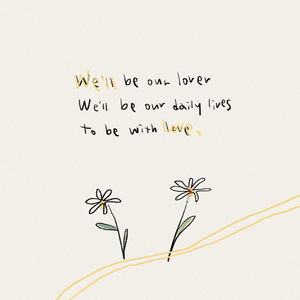 We'll be our lover
We'll be our daily lives
to be with love.